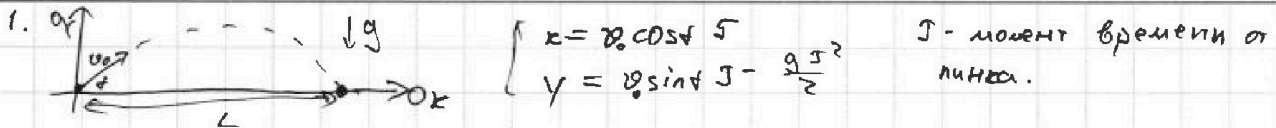 1. Oy v₀ α ↓g Ox L
{ x = v₀cosα τ
y = v₀sinα τ - gτ²/2
τ - момент времени от
пинка.